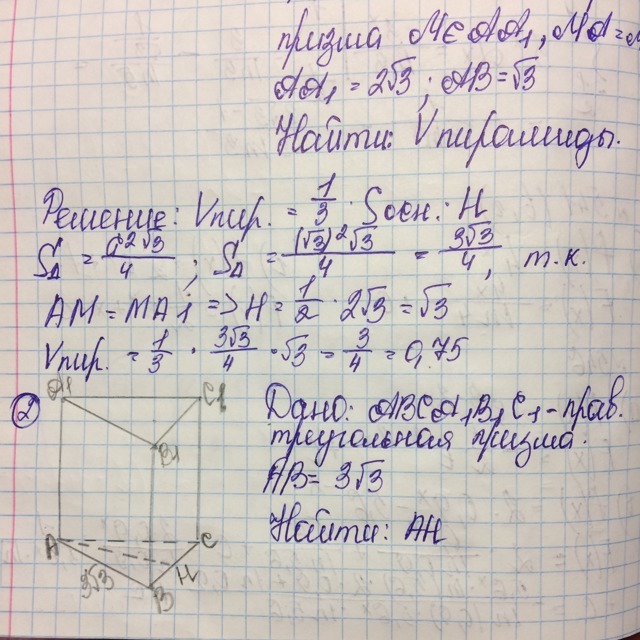 призма M∈AA₁, MA=M
AA₁ = 2√3 ; AB=√3
Найти: Vпирамиды.
Решение: Vпир. = 1/3 · Sосн. · H
S△ = a²√3/4 ; S△ = (√3)²√3/4 = 3√3/4, т.к.
AM = MA₁ => H = 1/2 · 2√3 = √3
Vпир. = 1/3 · 3√3/4 · √3 = 3/4 = 0,75
2
A1
C1
B1
A
C
H
3√3
B
Дано: ABCA₁B₁C₁ - прав.
треугольная призма.
AB = 3√3
Найти: AH